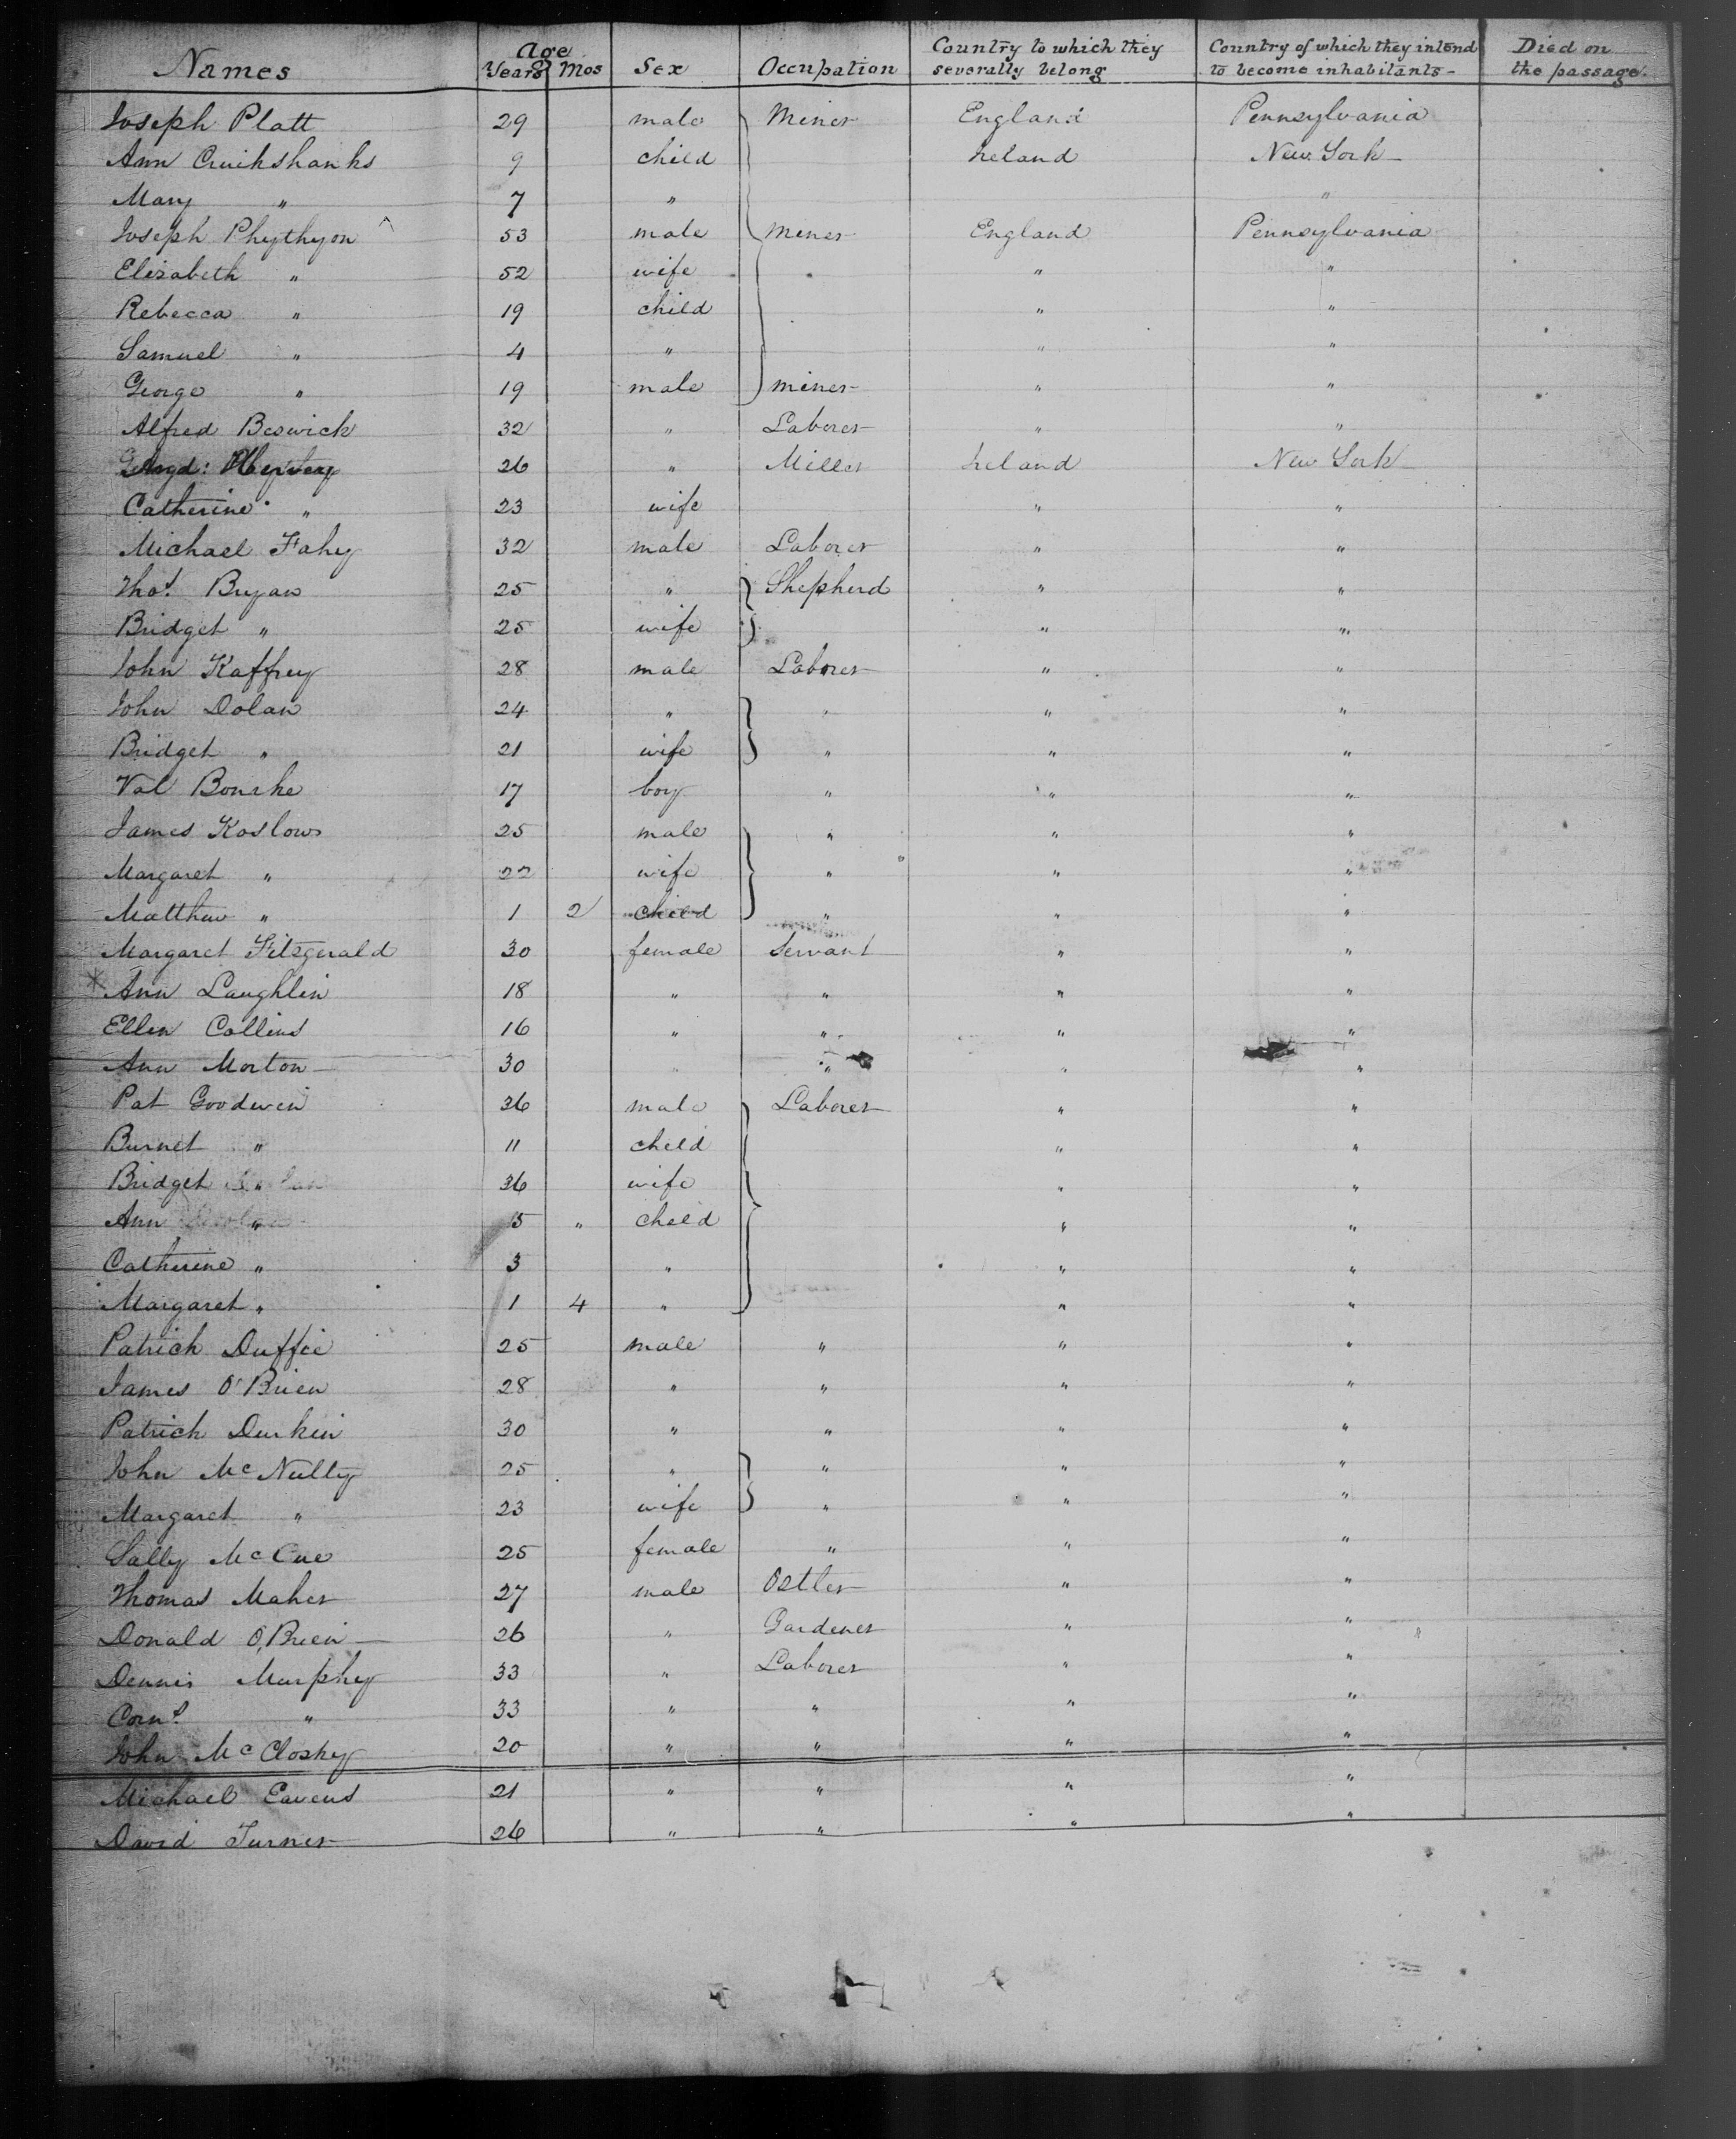 Names Age Years Mos Sex Occupation Country to which they severally belong Country of which they intend to become inhabitants- Died on the passage.
Joseph Platt 29 male Miner England Pennsylvania
Ann Cruikshanks 9 child Ireland New York
Mary " 7 " "
Joseph Phythyon 53 male Miner England Pennsylvania
Elizabeth " 52 wife " "
Rebecca " 19 child " "
Samuel " 4 " " "
George " 19 male miner " "
Alfred Beswick 32 " Laborer " "
26 " Miller Ireland New York
Catherine " 23 wife " "
Michael Fahy 32 male Laborer " "
Thos. Bryan 25 " Shepherd " "
Bridget " 25 wife " "
John Kaffrey 28 male Laborer " "
John Dolan 24 " " " "
Bridget " 21 wife " " "
Val Bourke 17 boy " " "
James Koslow 25 male " " "
Margaret " 22 wife " " "
Matthew " 1 2 child " " "
Margaret Fitzgerald 30 female Servant " "
Ann Laughlin 18 " " " "
Ellen Collins 16 " " " "
Ann Morton 30 " " " "
Pat Goodwin 36 male Laborer " "
Burnet " 11 child " "
Bridget " 36 wife " "
Ann " 5 " child " "
Catherine " 3 " " "
Margaret " 1 4 " " "
Patrick Duffie 25 male " " "
James O'Brien 28 " " " "
Patrick Durkin 30 " " " "
John McNulty 25 " " " "
Margaret " 23 wife " " "
Sally McCue 25 female " " "
Thomas Maher 27 male Ostler " "
Donald O,Brien 26 " Gardener " "
Dennis Murphy 33 " Laborer " "
Corns. " 33 " " " "
John McCloskey 20 " " " "
Michael Eavens 21 " " " "
David Turner 26 " " " "